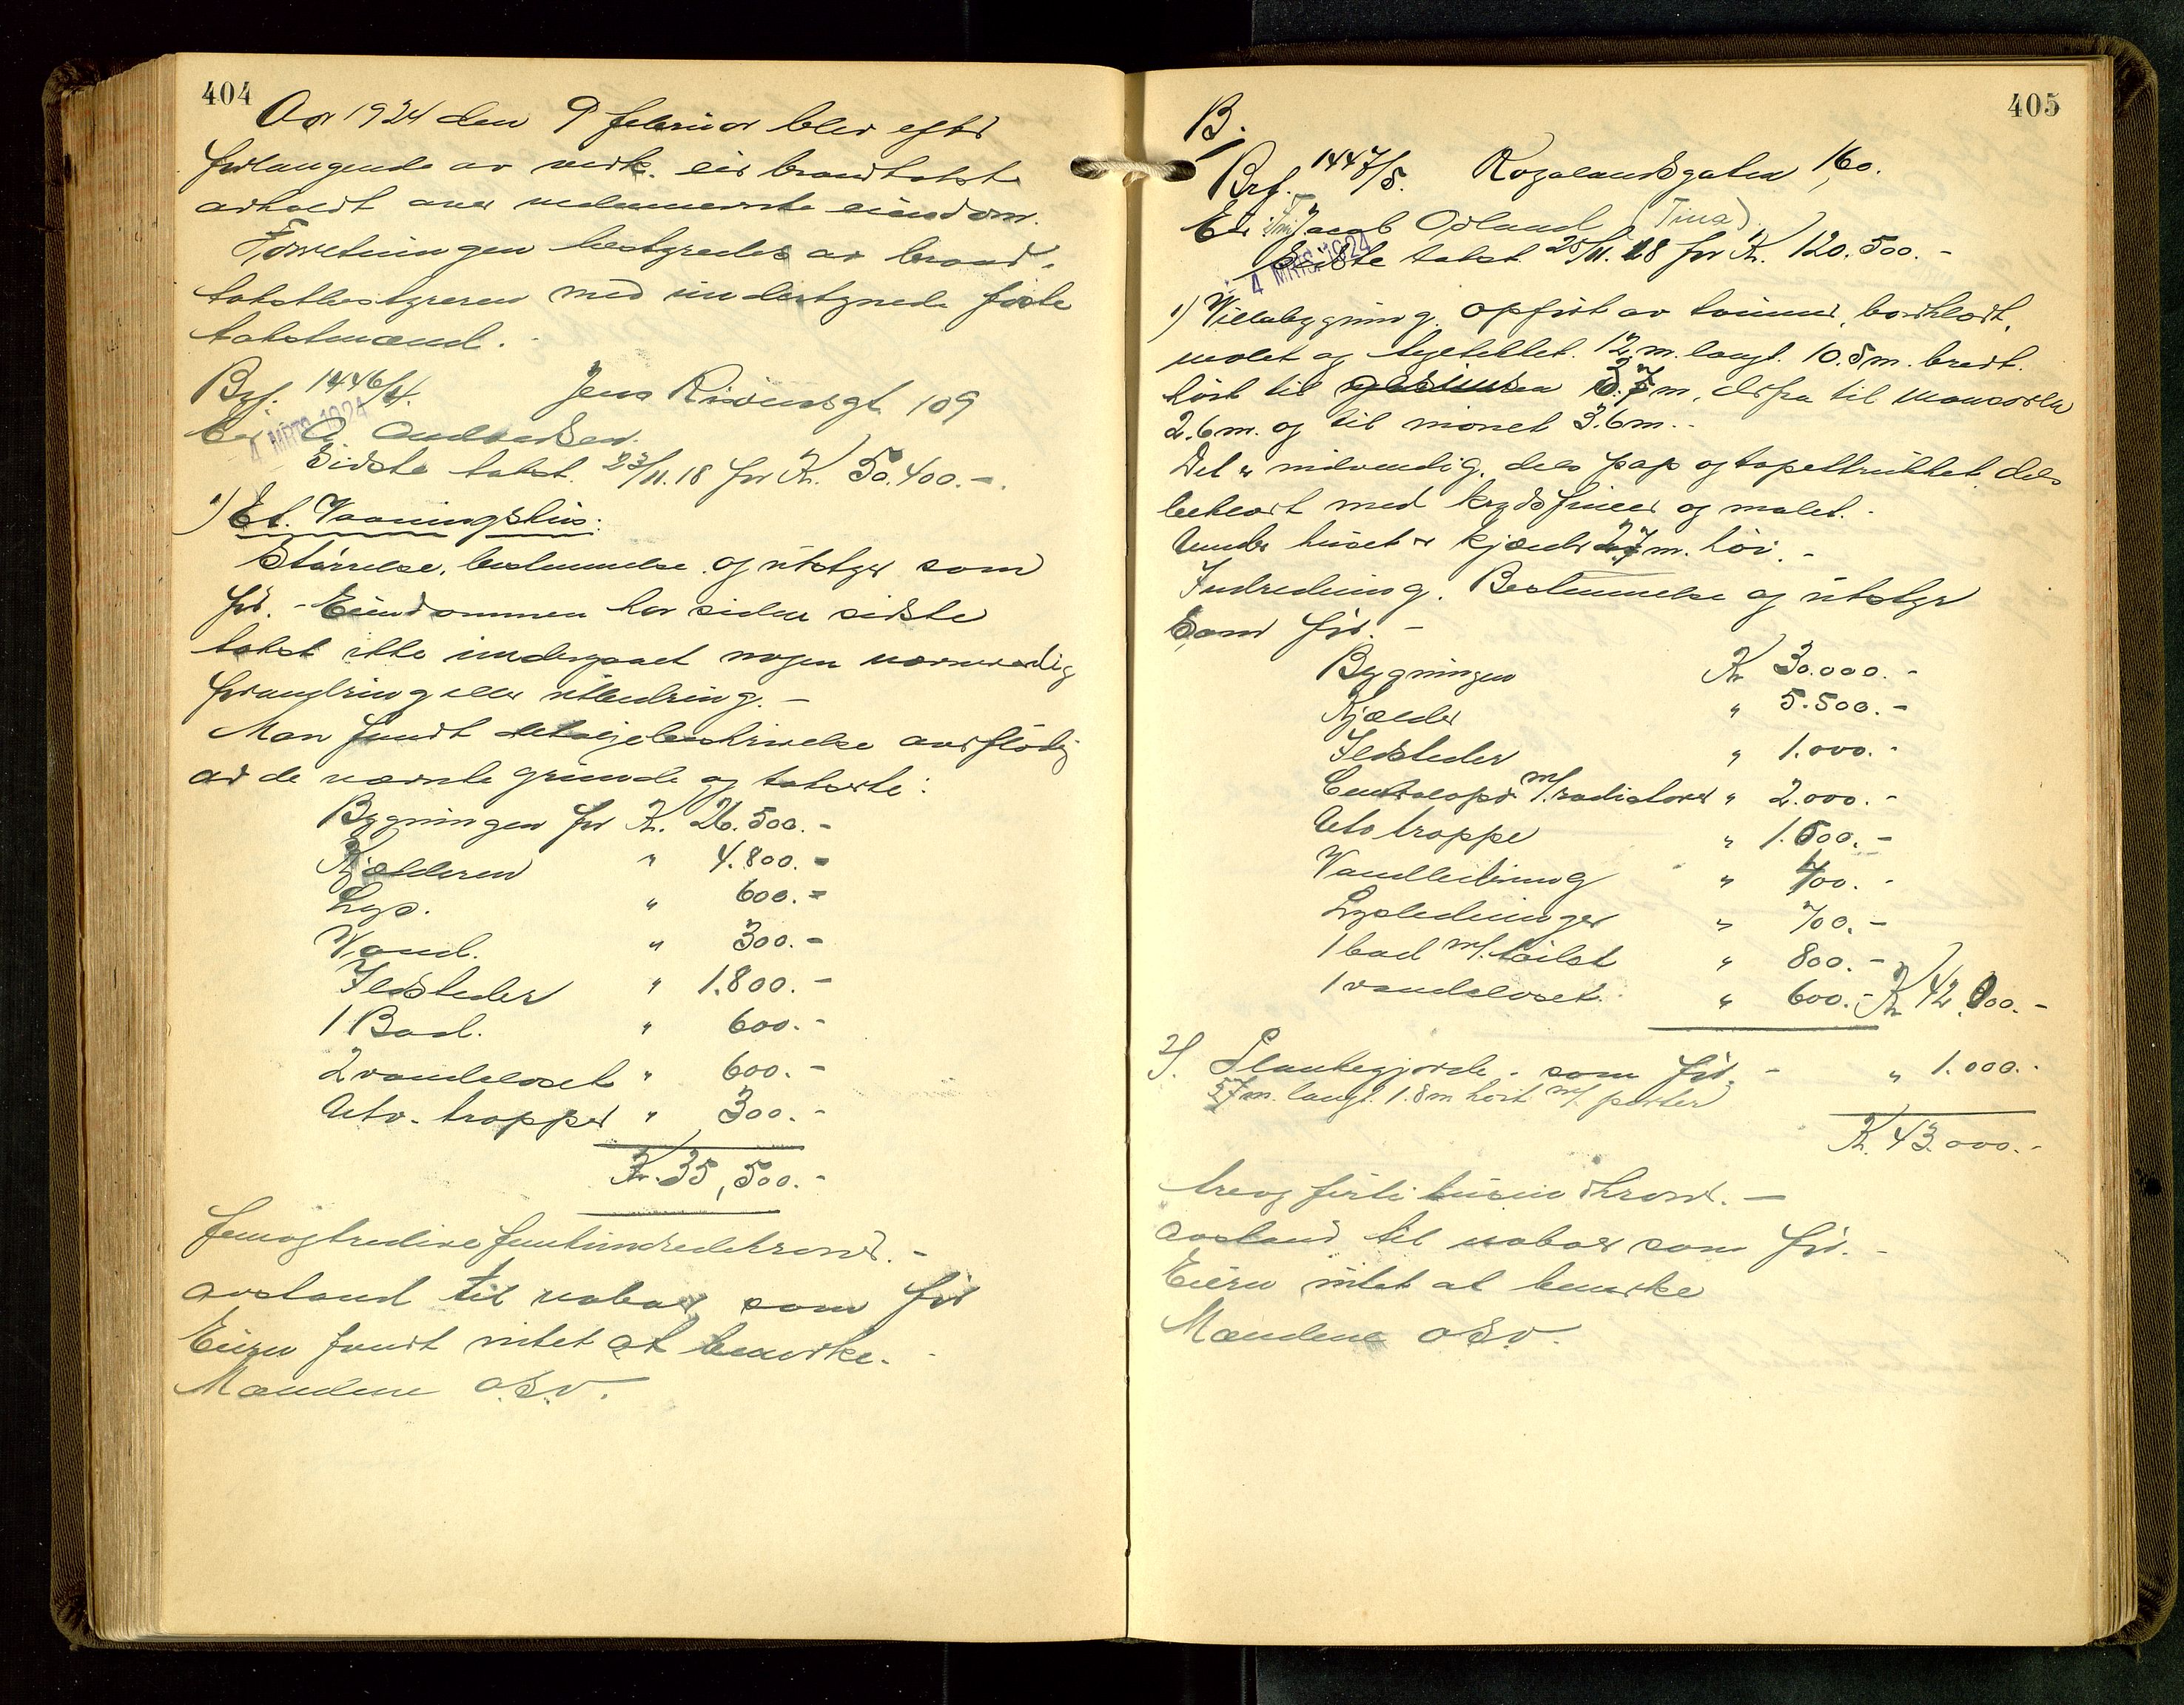 404
Aar 1924 den 9 februar blev efter
forlangende av vedk. eier brandtakst
avholdt over nedennevnte eiendom.
Forretningen bestyredes av brand-
takstbestyreren med undertegnede faste
takstmænd.
Brf. 1446/4. Jens Risüensgt 109
4 MRTS 1924
Eier A. Andersen.
Sidste takst 23/11.18 for Kr. 50.400.-.
1) Et. Vaaningshus:
Størrelse, bestemmelse og utstyr som
før. - Eiendommen har siden sidste
takst ikke undergaaet nogen nævneverdig
forandring eller utbedring. -
Man fandt detaljebeskrivelse overflødig
av de nævnte grunde og takserte:
Bygningen for Kr. 26.500.-
Kjælderen " 4.800.-
Lys. " 600.-
Vand. " 300.-
Ildsteder " 1.800.-
1 Bad. " 600.-
2 vandcloset " 600.-
Utv. trapper " 300.-
Kr. 35,500.-
femogtredive femhundredekroner. -
avstand til naboer som før
Eieren fandt intet at bemerke. -
Mændene o.s.v.
405
B.
Brf. 1447/5. Rogalandsgaten 160.
Eier: Jacob Ödland (Tina)
4 MRTS 1924
Sidste takst 25/11.18 for Kr. 120.500.-
1) Villabygning. opført av tømmer, bordklædt,
malet og teglttekket. 12 m. langt. 10.5 m. bredt.
høit til gesimsen 2.7 m, derfra til mansarden
2.6 m. og til mønet 3.6 m. -
Det er indvendig. dels pap og tapettrukket, dels
beklædt med krydsfiner og malet. -
Under huset er kjælder 2.7 m. høi. -
Indredning. Bestemmelse og utstyr
som før. -
Bygningen Kr 30.000.-
Kjælder " 5.500.-
Ildsteder " 1.000.-
Centralopv. m/. radiatorer " 2.000.-
Utv trappe " 1.000.-
Vandledning " 400.-
Lysledninger " 700.-
1 bad m/. toilet " 800.-
1 vandcloset. " 600.- Kr 42.000.-
2). Plankegjerde - som før. - " 1.000.-
27 m. langt. 1.8 m høit m/. porter
Kr. 43.000.-
treog førti tusindkroner. -
avstand til naboer som før. -
Eieren intet at bemerke
Mændene o.s.v.